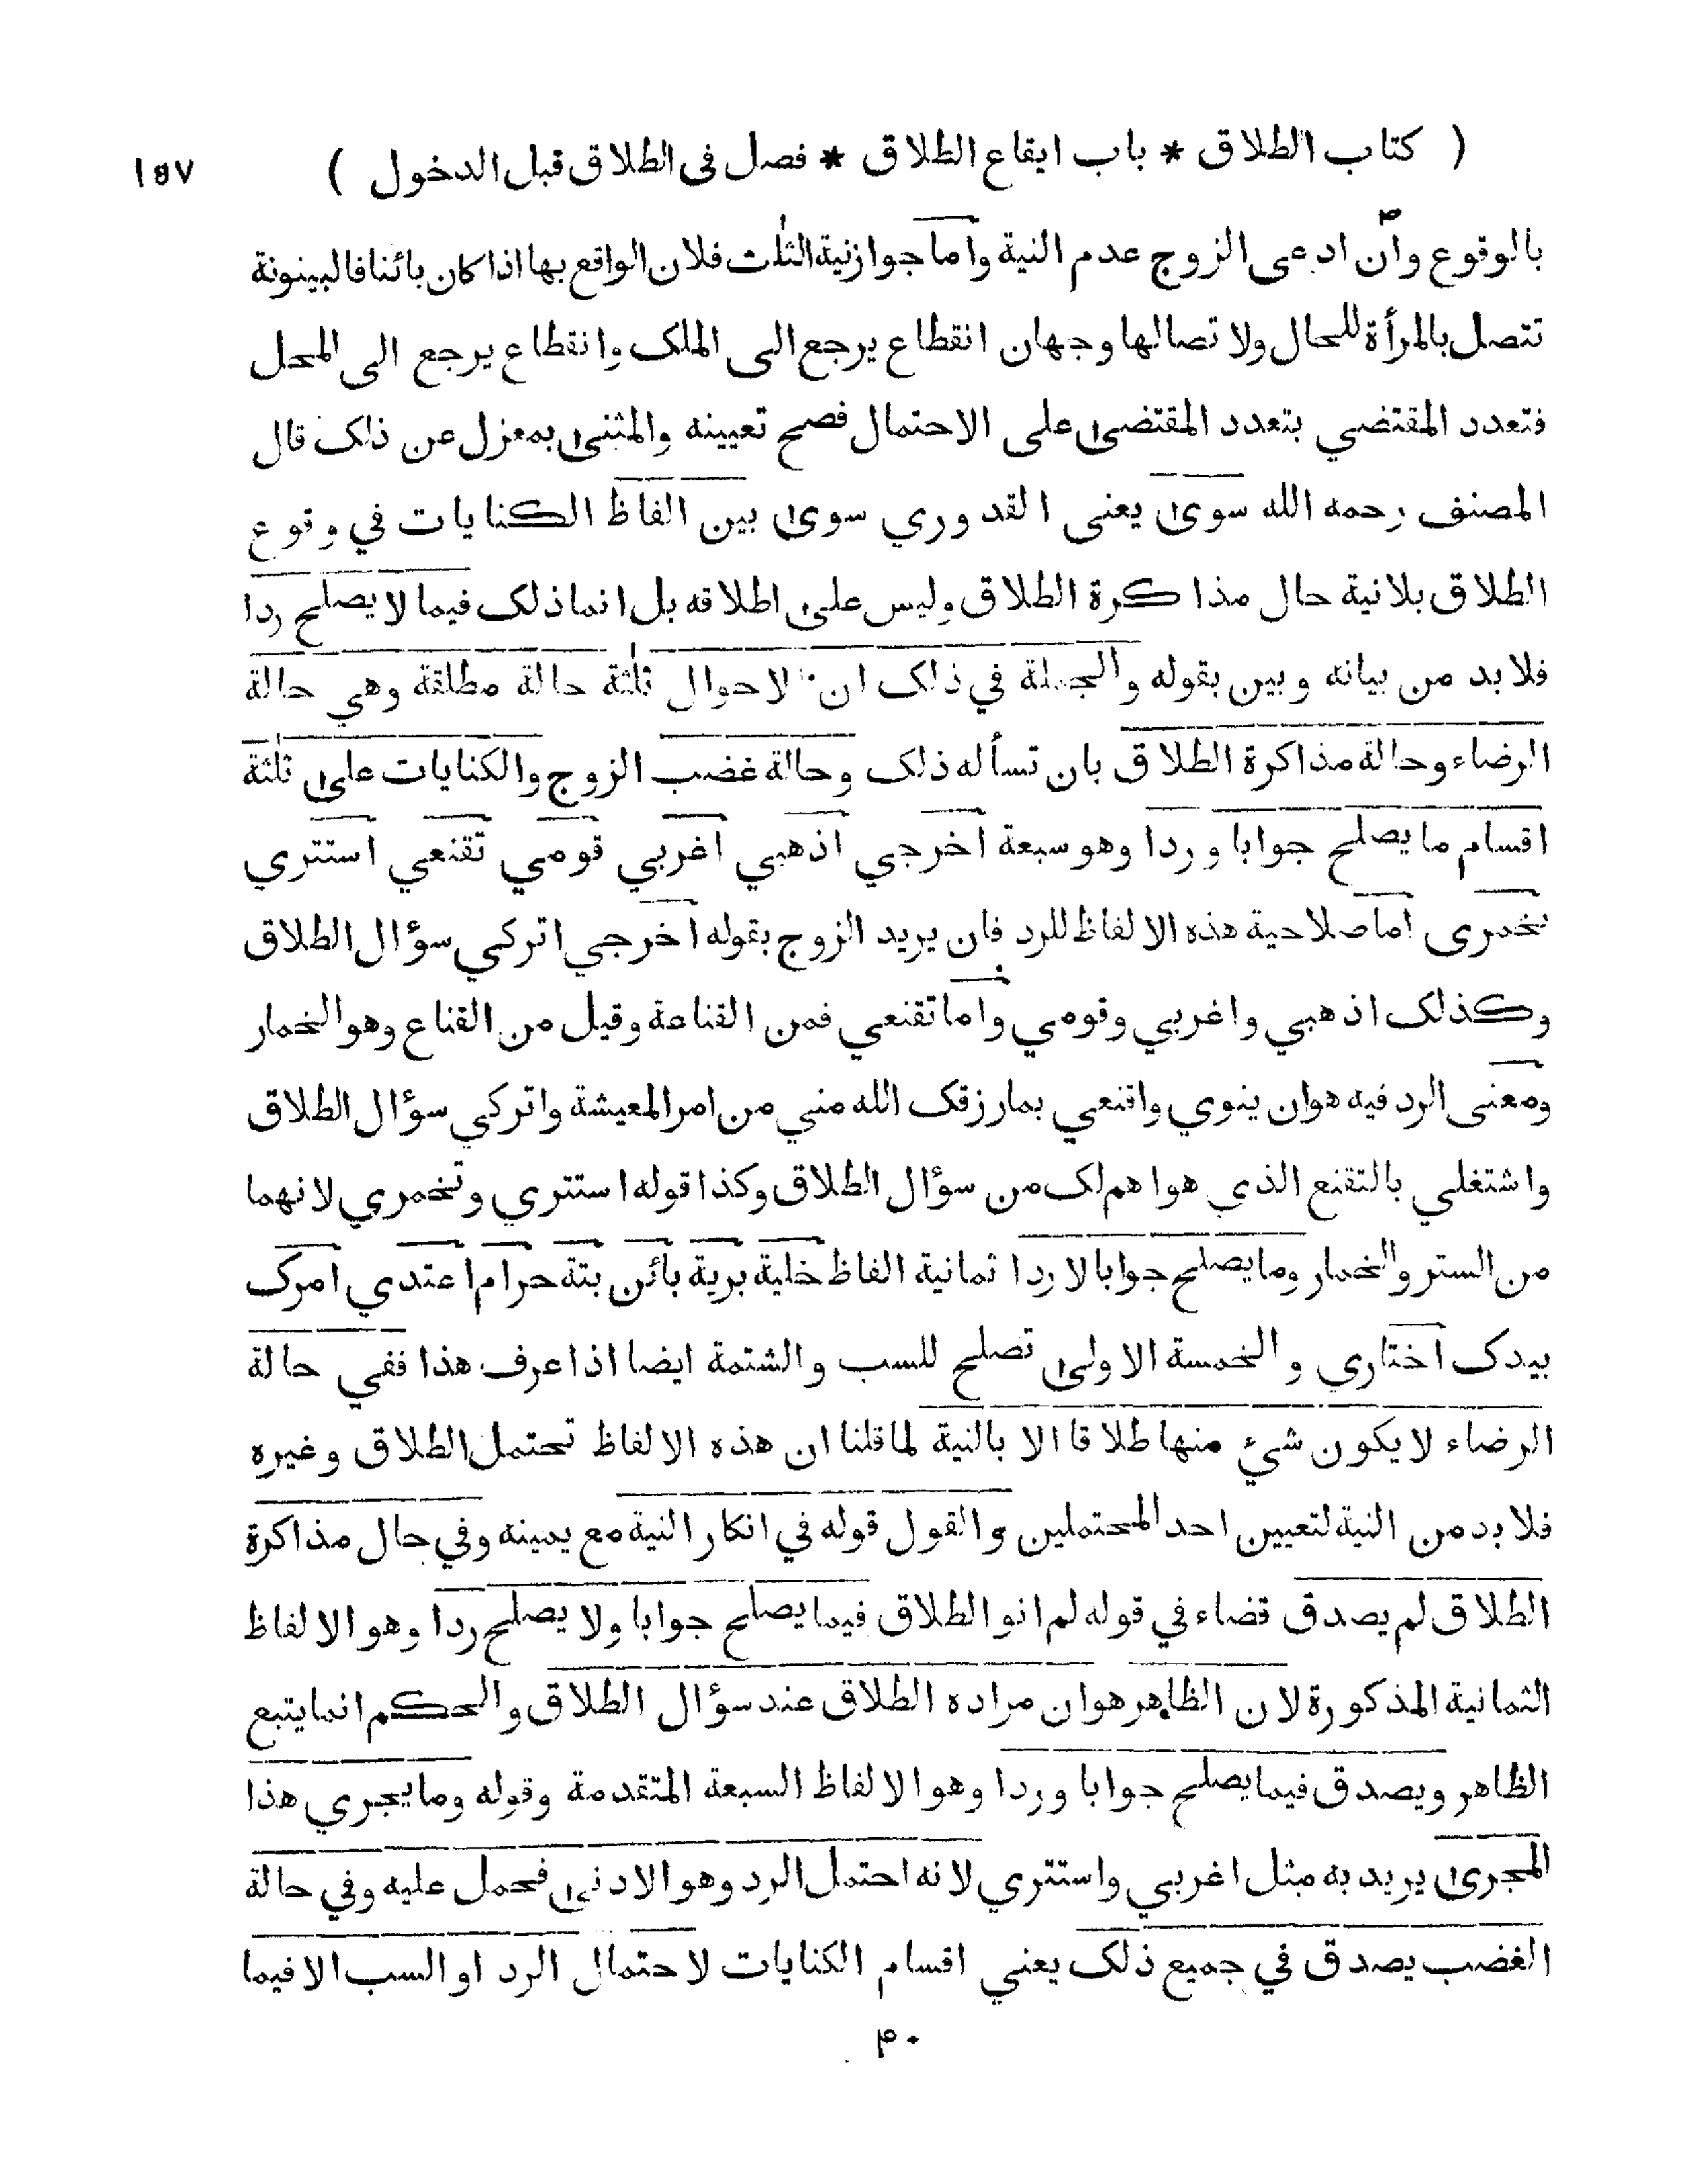 ( كتاب الطلاق * باب ايقاع الطلاق * فصل فى الطلاق قبل الدخول ) ١٥٧
بالوقوع وان ادعى الزوج عدم النية واما جواز نية الثلث فلان الواقع بها اذا كان بائنا فالبينونة
تتصل بالمرأة للحال ولا تصالها وجهان انقطاع يرجع الى الملك وانقطاع يرجع الى المحل
فتعدد المقتضي بتعدد المقتضى على الاحتمال فصح تعيينه والمثنى بمعزل عن ذلك قال
المصنف رحمه الله سوى يعنى القدوري سوى بين الفاظ الكنايات في وقوع
الطلاق بلانية حال مذاكرة الطلاق وليس على اطلاقه بل انما ذلك فيما لا يصلح ردا
فلا بد من بيانه وبين بقوله والجملة في ذلك ان الاحوال ثلثة حالة مطلقة وهي حالة
الرضاء وحالة مذاكرة الطلاق بان تسأله ذلك وحالة غضب الزوج والكنايات على ثلثة
اقسام ما يصلح جوابا وردا وهو سبعة اخرجي اذهبي اغربي قومي تقنعي استتري
تخمرى اما صلاحية هذه الالفاظ للرد فان يريد الزوج بقوله اخرجي اتركي سؤال الطلاق
وكذلك اذهبي واغربي وقومي واما تقنعي فمن القناعة وقيل من القناع وهو الخمار
ومعنى الرد فيه هوان ينوي واقنعي بمارزقك الله مني من امر المعيشة واتركي سؤال الطلاق
واشتغلي بالتقنع الذي هو اهم لك من سؤال الطلاق وكذا قوله استتري وتخمري لانهما
من الستر والخمار وما يصلح جوابا لا ردا ثمانية الفاظ خلية برية بائن بتة حرام اعتدي امرك
بيدك اختاري والخمسة الاولى تصلح للسب والشتمة ايضا اذا عرف هذا ففي حالة
الرضاء لا يكون شيء منها طلاقا الا بالنية لما قلنا ان هذه الالفاظ تحتمل الطلاق وغيره
فلا بد من النية لتعيين احد المحتملين والقول قوله في انكار النية مع يمينه وفي حال مذاكرة
الطلاق لم يصدق قضاء في قوله لم انو الطلاق فيما يصلح جوابا ولا يصلح ردا وهو الالفاظ
الثمانية المذكورة لان الظاهر هوان مراده الطلاق عند سؤال الطلاق والحكم انما يتبع
الظاهر ويصدق فيما يصلح جوابا وردا وهو الالفاظ السبعة المتقدمة وقوله وما يجري هذا
المجرى يريد به مثل اغربي واستتري لانه احتمل الرد وهو الادنى فحمل عليه وفي حالة
الغضب يصدق في جميع ذلك يعني اقسام الكنايات لاحتمال الرد او السب الا فيما
۴۰